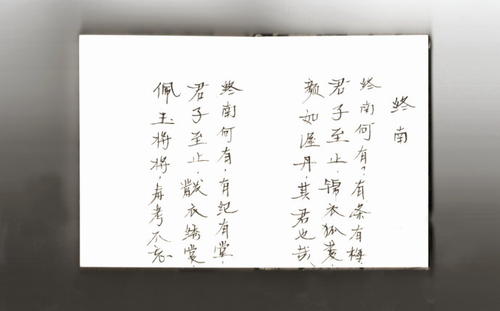 終南
終南何有？有条有梅，
君子至止，锦衣狐裘，
颜如渥丹，其君也哉
終南何有，有纪有堂，
君子至止，黻衣绣裳，
佩玉将将，寿考不忘